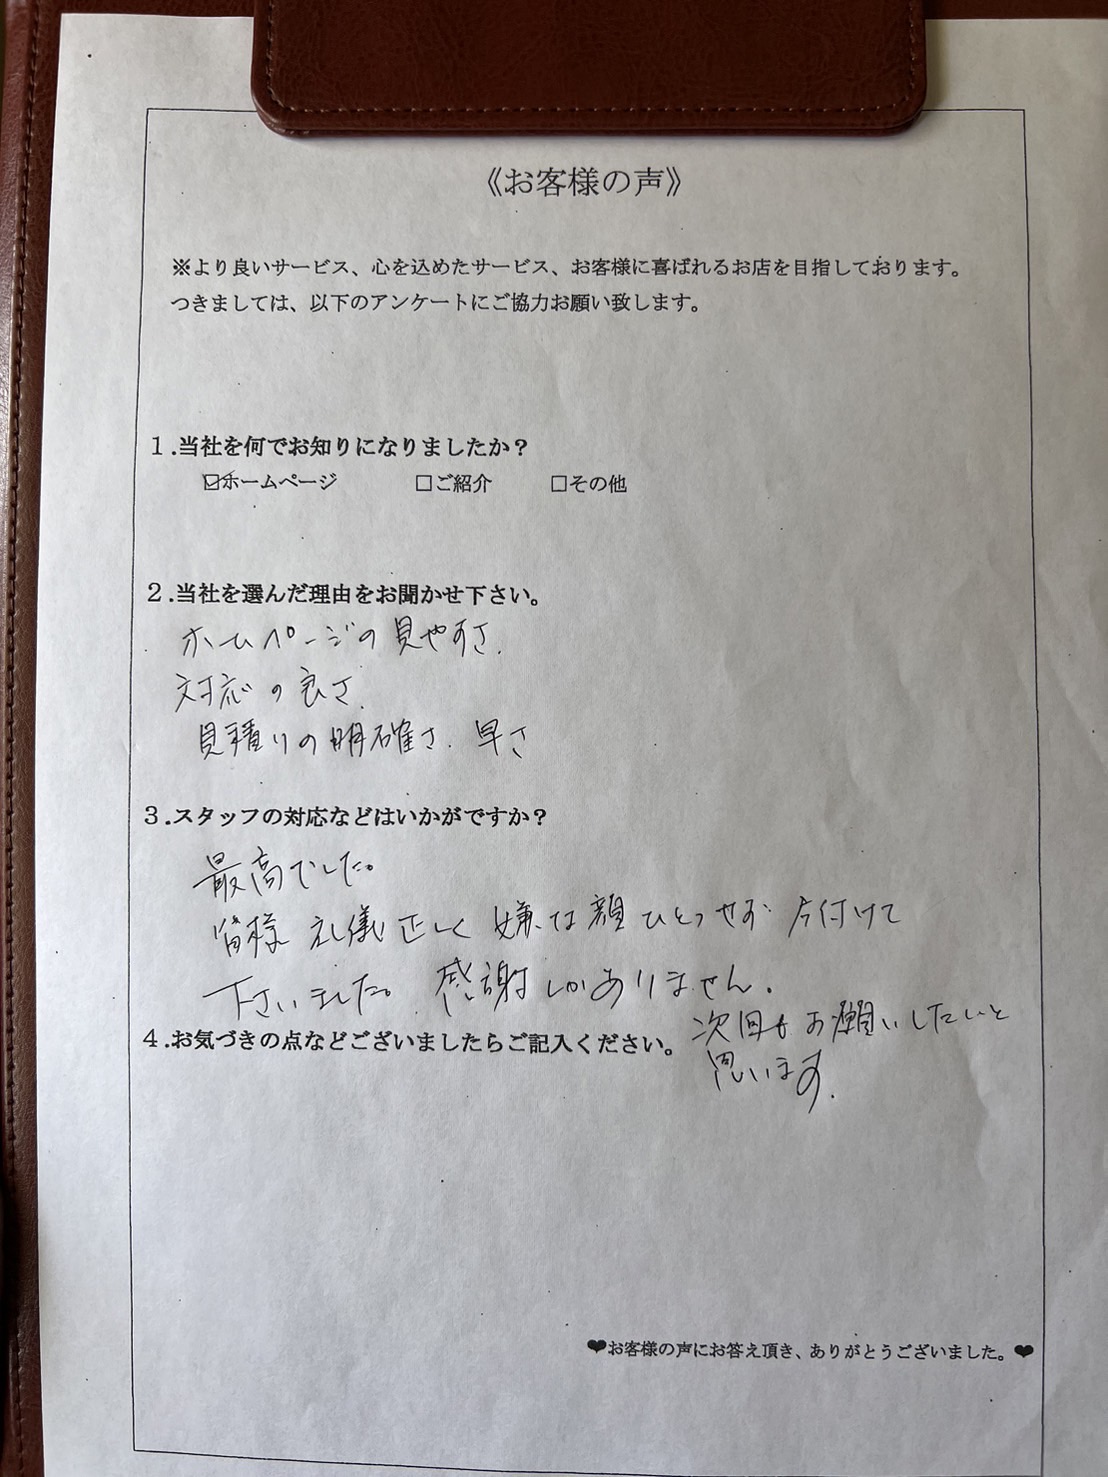 《お客様の声》
※より良いサービス、心を込めたサービス、お客様に喜ばれるお店を目指しております。
つきましては、以下のアンケートにご協力お願い致します。
1.当社を何でお知りになりましたか？
☑ホームページ　□ご紹介　□その他
2.当社を選んだ理由をお聞かせ下さい。
ホームページの見やすさ.
対応の良さ.
見積りの明確さ.早さ
3.スタッフの対応などはいかがですか？
最高でした。
皆様 礼儀正しく 嫌な顔ひとつせず 片付けて
下さいました。感謝しかありません。
次回もお願いしたいと
思います.
4.お気づきの点などございましたらご記入ください。
❤お客様の声にお答え頂き、ありがとうございました。❤